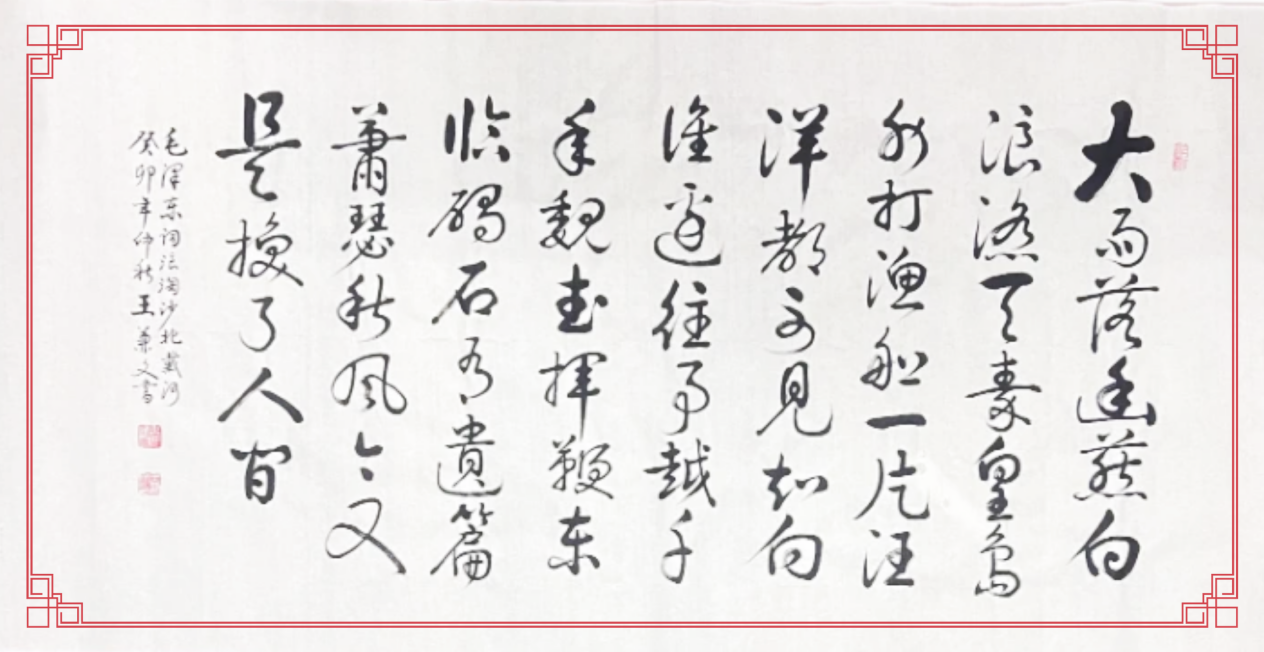 大雨落幽燕白
浪滔天秦皇岛
外打渔船一片汪
洋都不見知向
谁边往事越千
年魏武挥鞭东
临碣石有遺篇
蕭瑟秋风今又
是换了人间
毛泽东词浪淘沙北戴河
癸卯年仲秋王文书